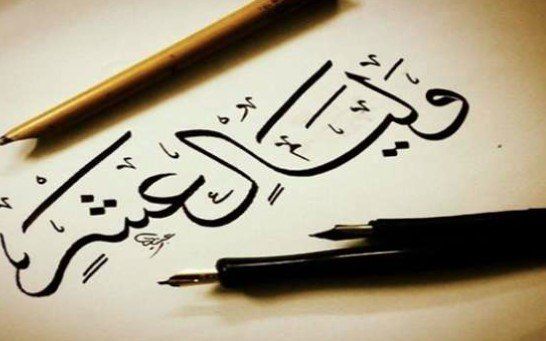 وَلَيَالٍ عَشْرٍ